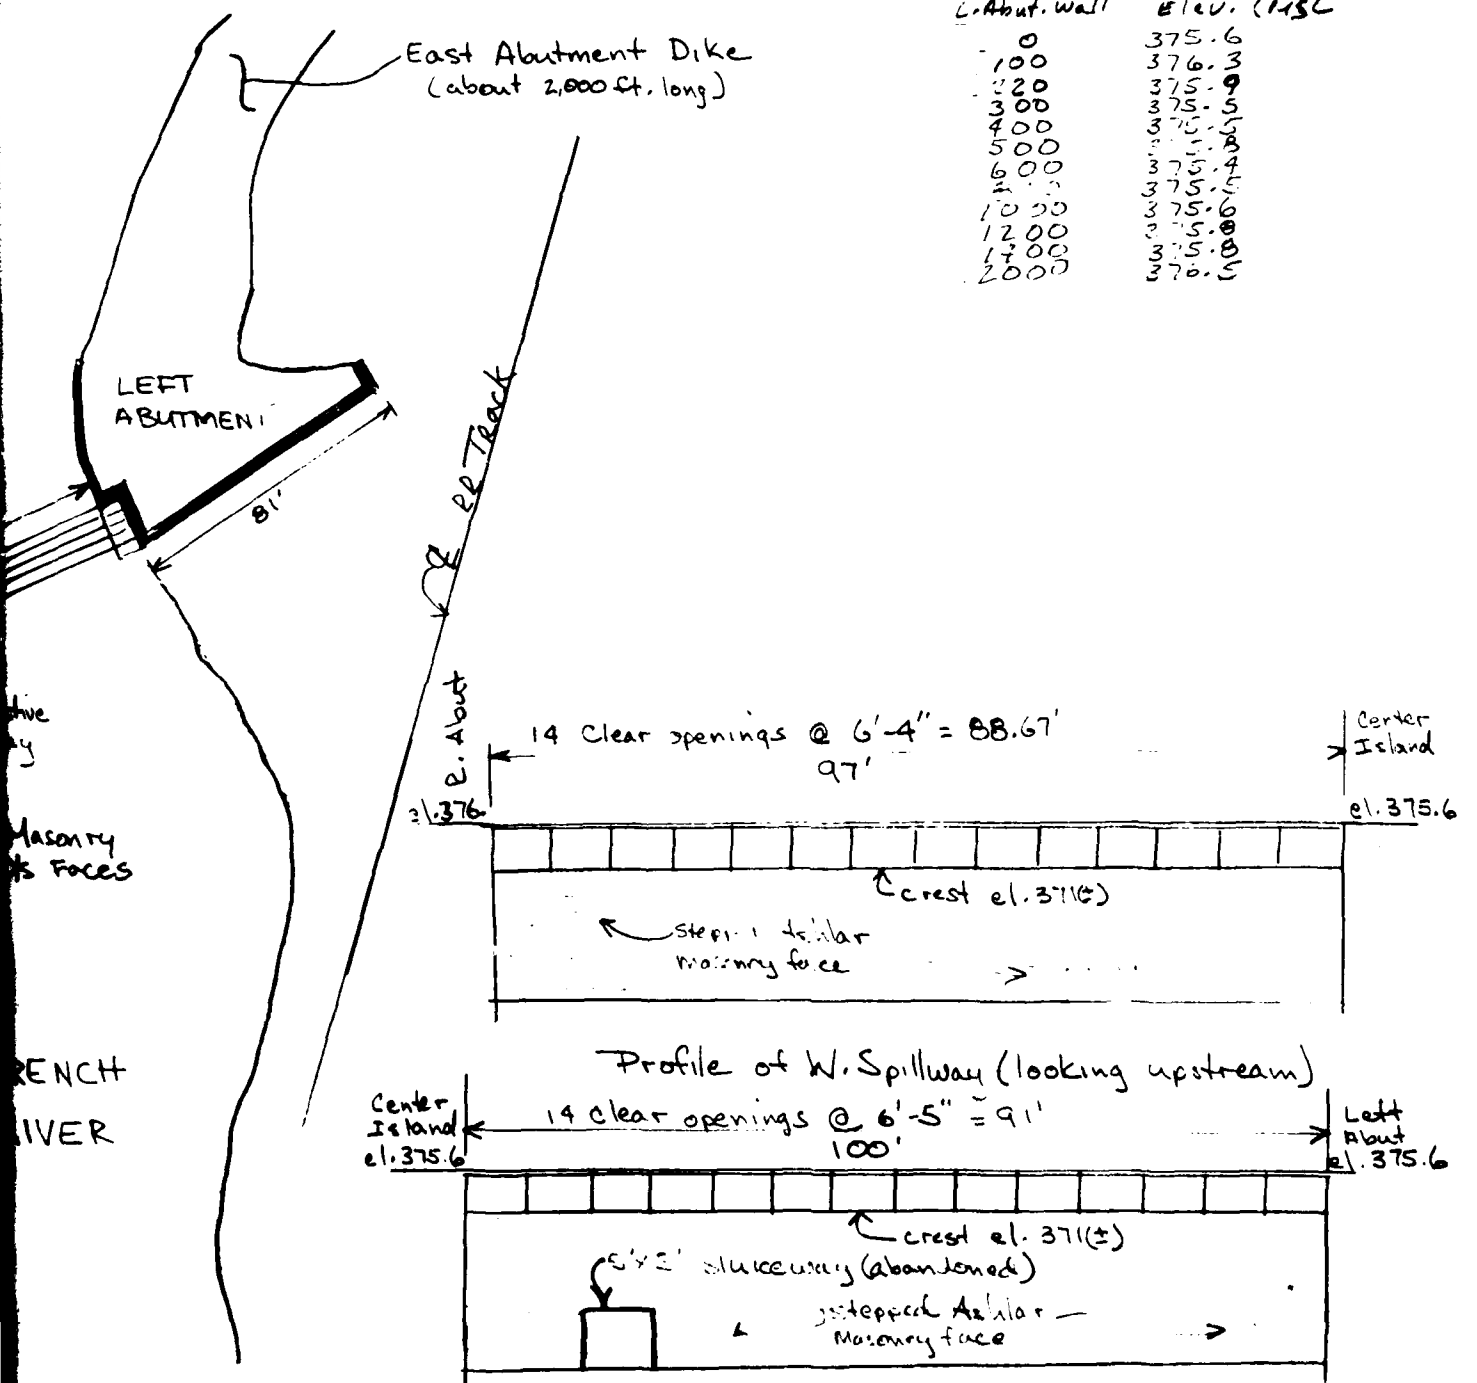 L. Abut. Wall Elev. (MSL
0 375.6
100 376.3
220 375.9
300 375.5
400 375.5
500
600 375.4
375.5
1000 375.6
1200
375.8
2000 376.5
East Abutment Dike
(about 2,000 ft. long)
LEFT
ABUTMENT
81'
℄ RR Track
Masonry
Faces
RENCH
IVER
R. About
14 Clear openings @ 6'-4" = 88.67'
97'
Center
Island
el.376.
el.375.6
crest el. 371(±)
Ashlar
masonry face
Profile of W. Spillway (looking upstream)
Center
Island
el.375.6
14 clear openings @ 6'-5" = 91'
100'
Left
Abut
el.375.6
crest el. 371(±)
sluiceway (abandoned)
stepped Ashlar
Masonry face